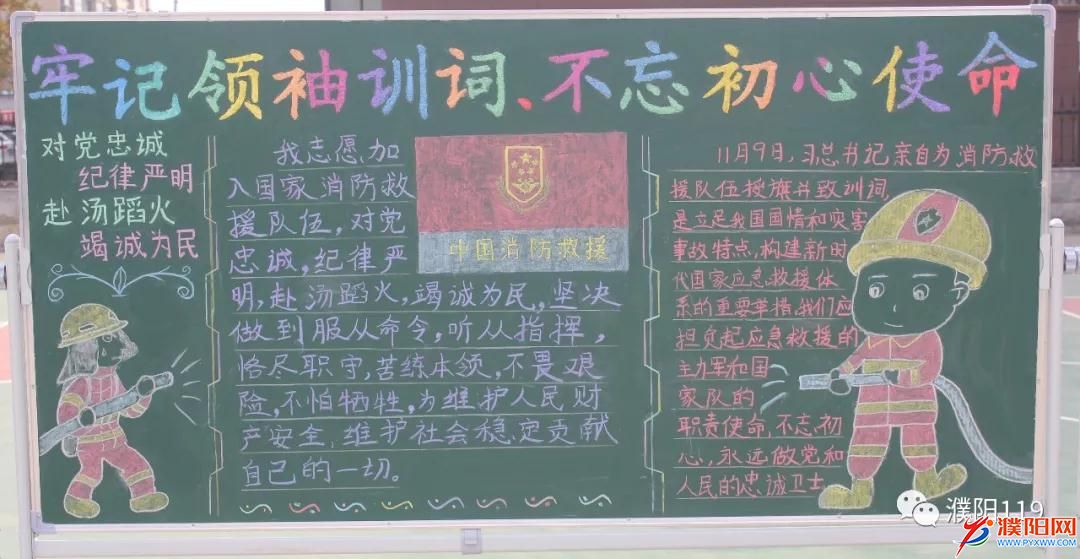 牢记领袖训词、不忘初心使命
对党忠诚
纪律严明
赴汤蹈火
竭诚为民
我志愿加
入国家消防救
援队伍，对党
忠诚，纪律严
明，赴汤蹈火，竭诚为民，坚决
做到服从命令，听从指挥，
恪尽职守，苦练本领，不畏艰
险，不怕牺牲，为维护人民财
产安全，维护社会稳定贡献
自己的一切。
中国消防救援
11月9日，习总书记亲自为消防救
援队伍授旗并致训词，
是立足我国国情和灾害
事故特点，构建新时
代国家应急救援体
系的重要举措，我们应
担负起应急救援的
主力军和国
家队的
职责使命，不忘初
心，永远做党和
人民的忠诚卫士
濮阳119
濮阳网
WWW.PYXWW.COM